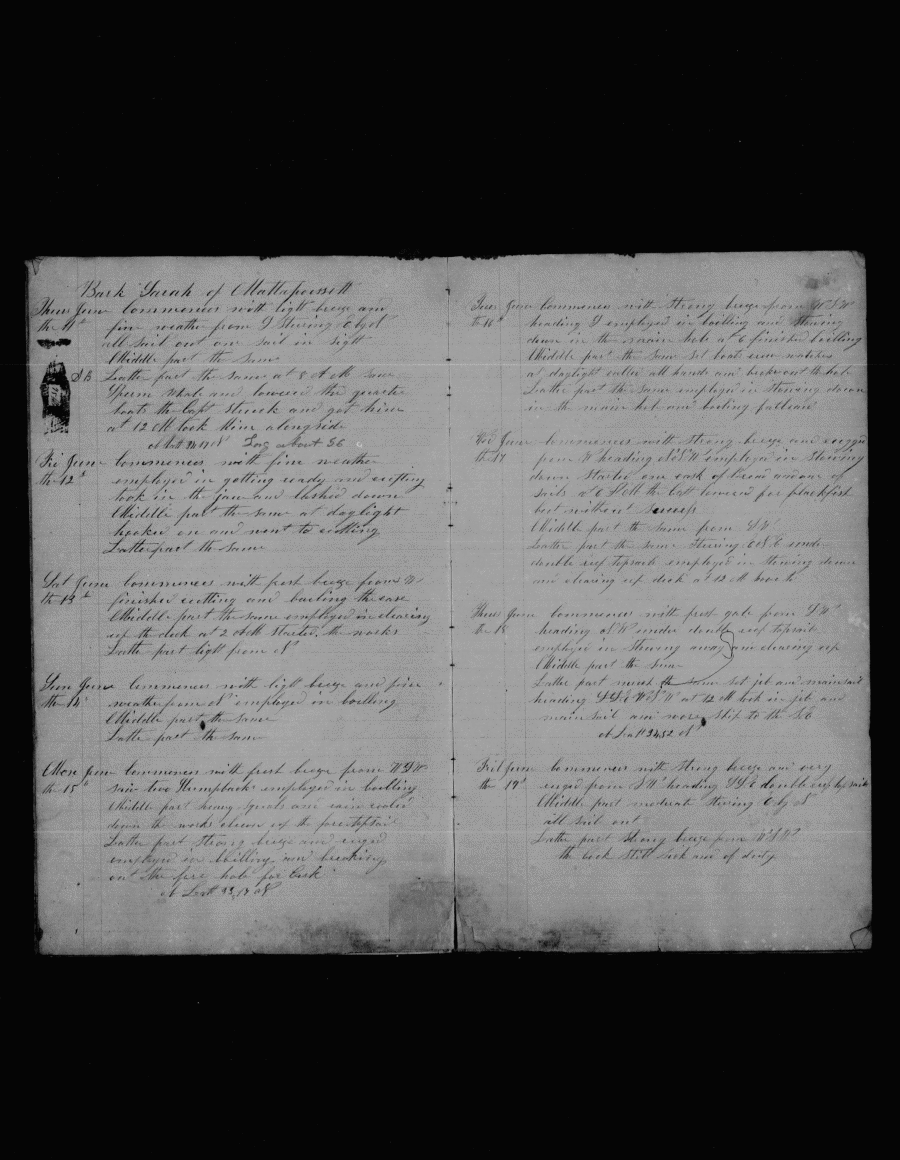 Bark Sarah of Mattapoissett
Thurs June Commences with light breeze and
the 11th fine weather from S Stearing E by S
all Sail out one Sail in Sight
Middle part the Same
SB Latter part the Same at 8 A M saw
Sperm Whale and lowered the quarter
boats the Capt Struck and got him
at 12 M took him alongside
Fri June Commences with fine weather
the 12th employed in getting ready and cutting
took in the jaw and lashed down
Middle part the Same at daylight
hooked on and went to cutting
Latter part the Same
Sat June Commences with fresh breeze from W
the 13th finished cutting and bailing the case
Middle part the Same employed in clearing
up the deck at 2 A M Started the works
Latter part light from N
Sun June Commences with light breeze and fine
the 14 weather from N employed in boilling
Middle part the Same
Latter part the Same
Mon June Commences with fresh breeze from WSW
the 15th saw two Humpback employed in boilling
Middle part heavy squals and rain
down the works clewed up the foretopsail
Latter part Strong breeze and ruged
employed in boilling and breaking
out the fore hole for Cask
Tues June Commences with Strong breeze from WSW
the 16th heading S employed in boilling and Stowing
down in the main hole at 6 finished boilling
Middle part the Same set boats crew watches
at daylight called all hands and broke out the hole
Latter part the Same employed in Stowing down
in the main hole and
Wed June Commences with Strong breeze and ruged
the 17 from W heading SSW employed in Stowing
down Started one cask of bread and one of
sails at 6 P M the Capt lowered for blackfish
but without Sucess
Middle part the Same from SW
Latter part the Same Stearing under
double reef topsails employed in Stowing down
and clearing up deck at 12 M
Thurs June Commences with fresh gale from SW
the 18 heading under double reef topsails
employed in Stowing away and clearing up
Middle part the Same
Latter part much the Same set jib and mainsail
heading at 12 M took in jib and
main sail and wore Ship to the
Frid June Commences with Strong breeze and very
the 19th ruged from SW heading SSE double reef topsails
Middle part moderate Stearing E by S
all Sail out
Latter part Strong breeze from WSW
the Cook Still Sick and of duty